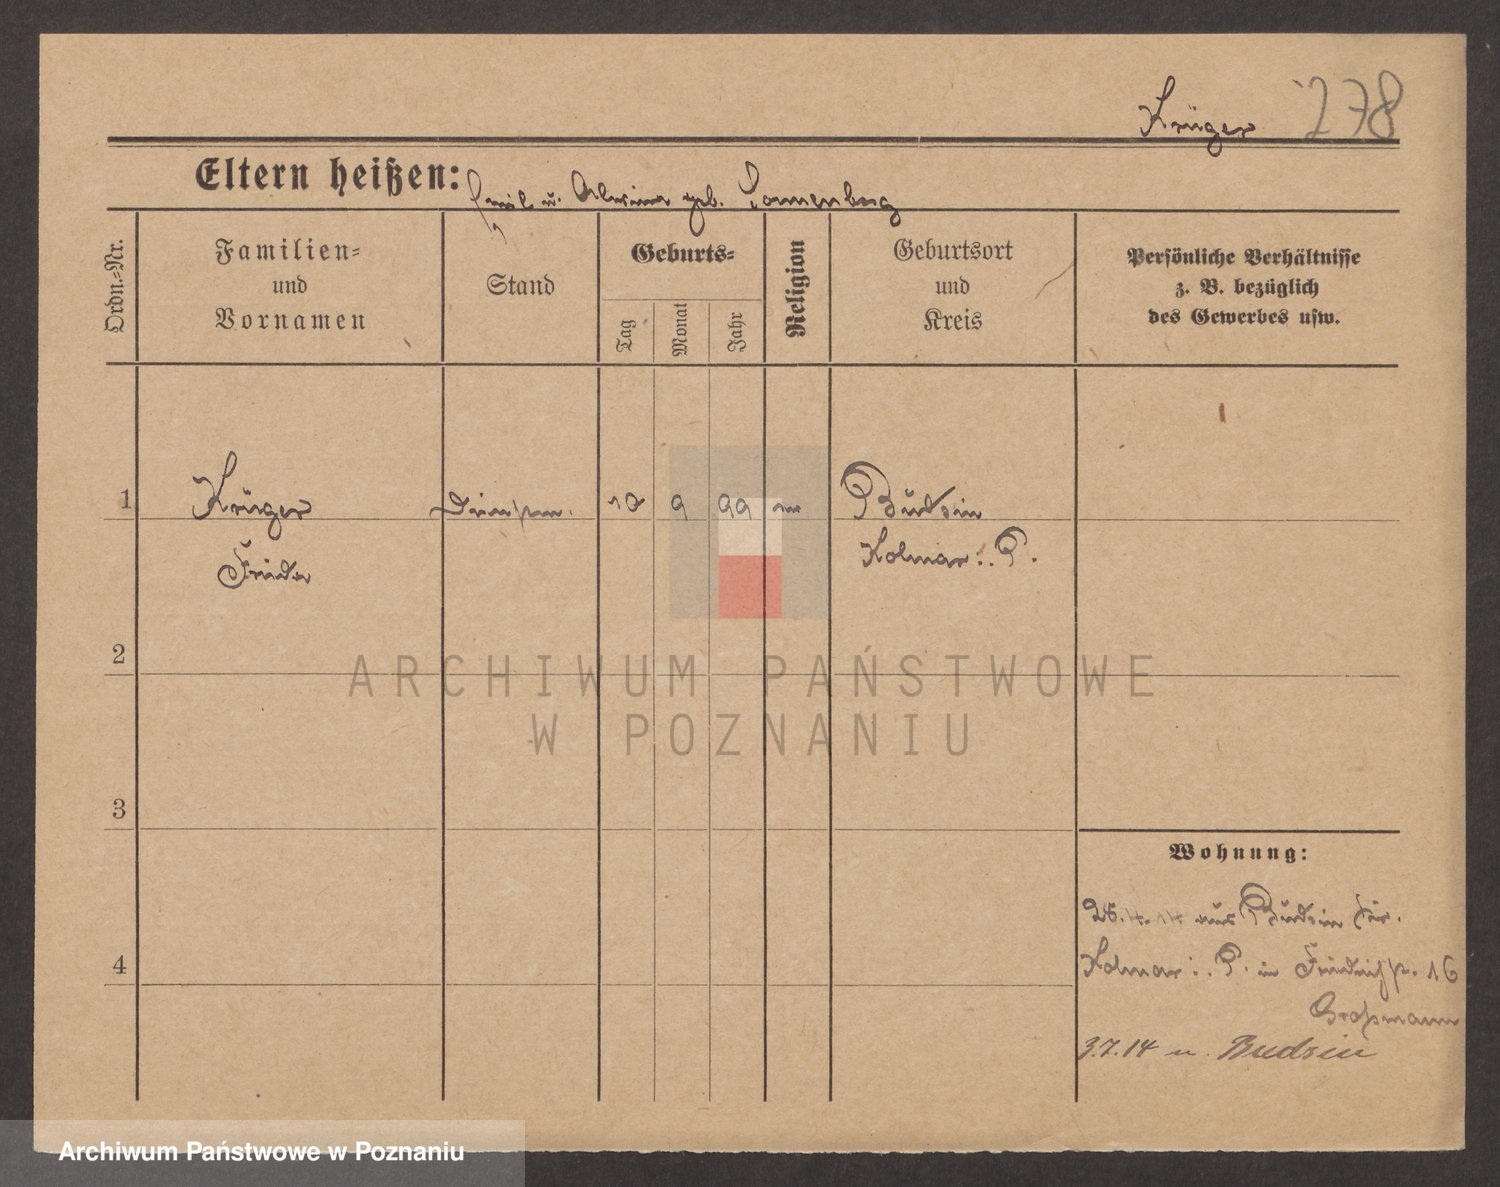 Krüger 278
Eltern heißen: Emil u. Alwine geb. Sonnenberg
Ordn.-Nr.
Familien-
und
Vornamen
Stand
Geburts-
Tag
Monat
Jahr
Religion
Geburtsort
und
Kreis
Persönliche Verhältnisse
z. B. bezüglich
des Gewerbes usw.
1 Krüger 10 9 99 Budsin
Frieda Kolmar i. P.
2
3
4
Wohnung:
aus Budsin Kr.
Kolmar i. P. in Friedrichstr. 16
Großmann
3.7.14 n. Budsin
ARCHIWUM PAŃSTWOWE
W POZNANIU
Archiwum Państwowe w Poznaniu